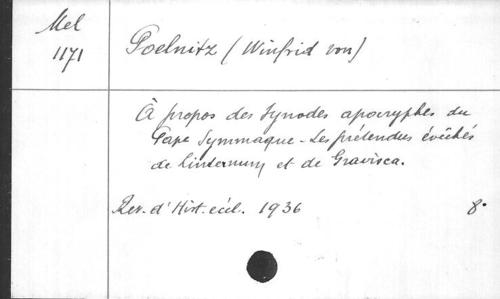 Mel
1171
Poelnitz (Winfrid von)
À propos des Synodes apocryphes du
Pape Symmaque - Les prétendus évêchés
de Linternum et de Gravisca.
Rev. d'Hist. eccl. 1936 8°